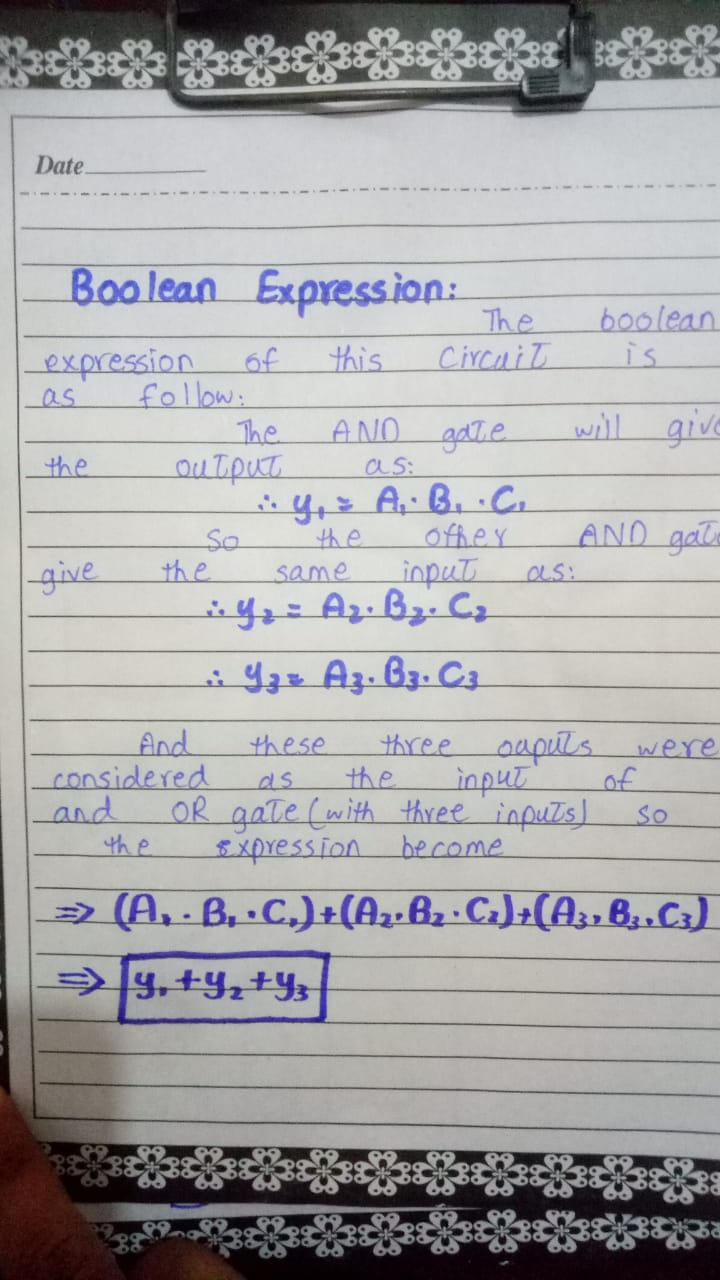 Date
Boolean Expression:
The boolean
expression of this Circuit is
as follow:
The AND gate will give
the output as:
∴ y₁ = A₁ · B₁ · C₁
So the other AND gate
give the same input as:
∴ y₂ = A₂ · B₂ · C₂
∴ y₃ = A₃ · B₃ · C₃
And these three oaputs were
considered as the input of
and OR gate (with three inputs) so
the expression become
⇒ (A₁ · B₁ · C₁) + (A₂ · B₂ · C₂) + (A₃ · B₃ · C₃)
⇒ y₁ + y₂ + y₃